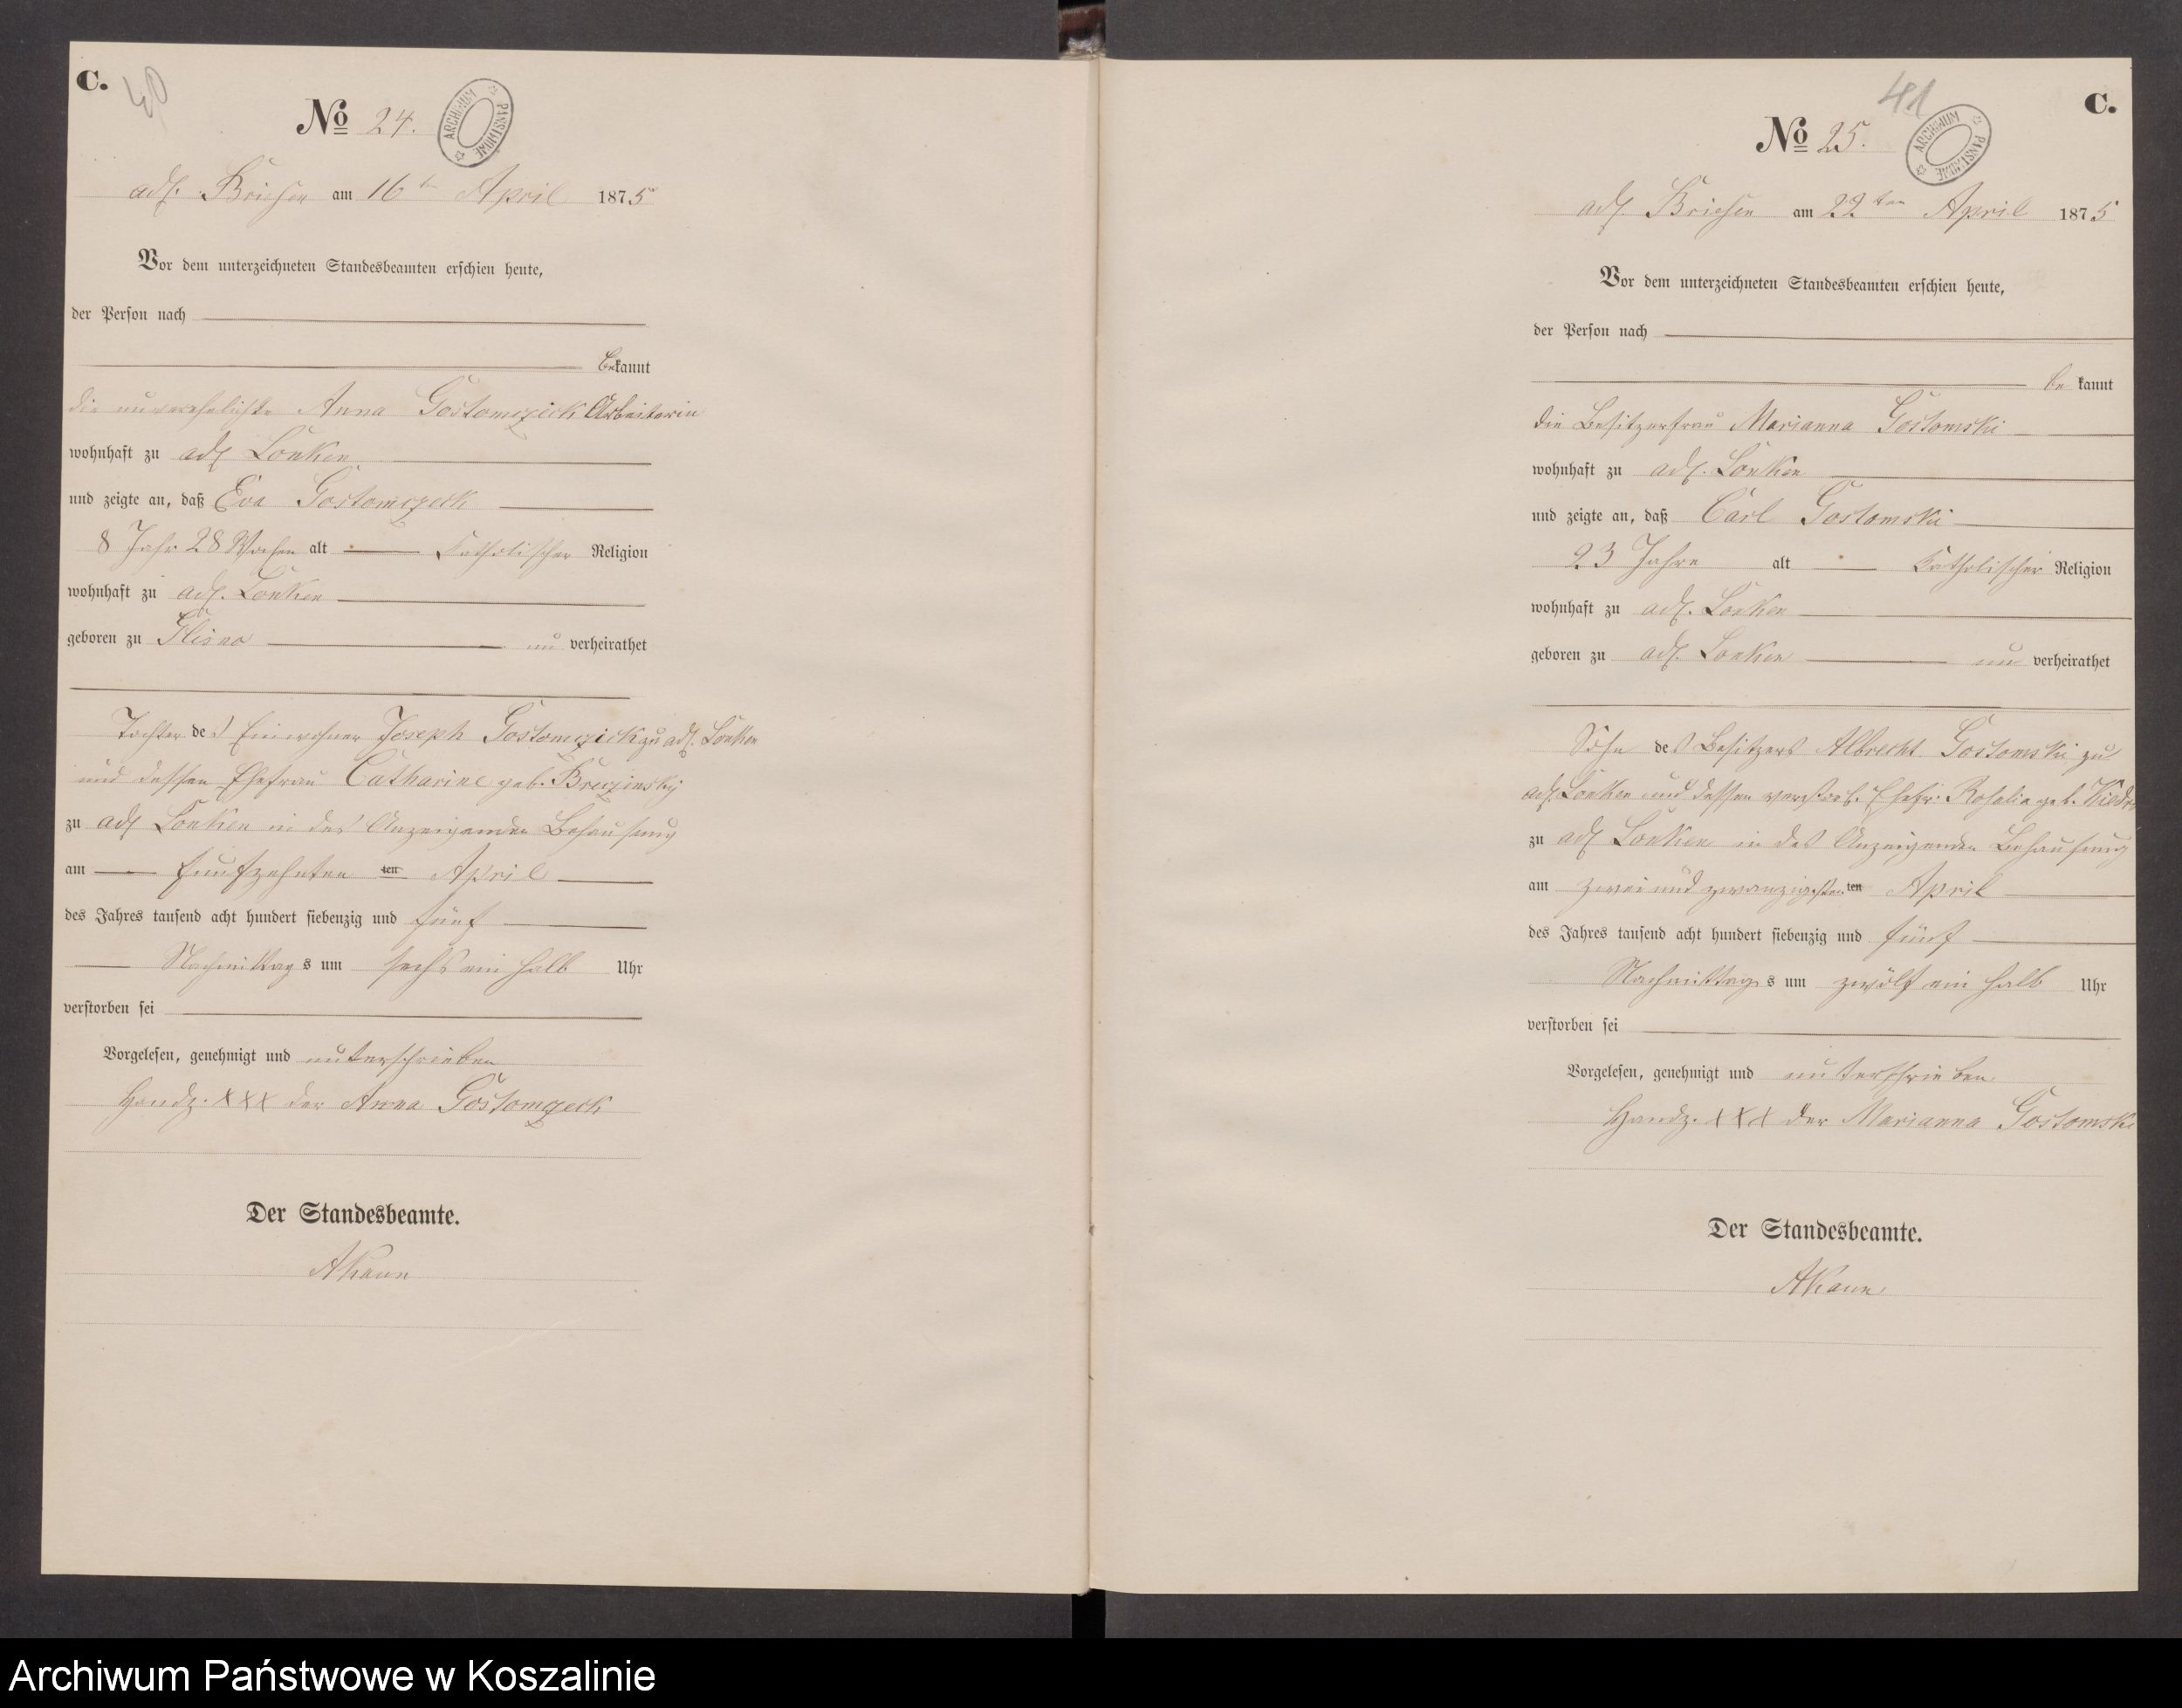 C. 40
No 24.
ARCHIWUM PAŃSTWOWE
adl. Briesen am 16ten April 1875
Vor dem unterzeichneten Standesbeamten erschien heute,
der Person nach
bekannt
die unverehelichte Anna Gostomczick Arbeiterin
wohnhaft zu adl Lonken
und zeigte an, daß Eva Gostomczeck
8 Jahr 28 Wochen alt Katholischer Religion
wohnhaft zu adl. Lonken
geboren zu Glisno unverheirathet
Tochter des Einwohner Joseph Gostomczick zu adl. Lonken
und dessen Ehefrau Catharine geb. Brezinsky
zu adl Lonken in des Anzeigenden Behausung
am fünfzehnten ten April
des Jahres tausend acht hundert siebenzig und fünf
Nachmittags um sechs ein halb Uhr
verstorben sei
Vorgelesen, genehmigt und unterschrieben
Handz. XXX der Anna Gostomczeck
Der Standesbeamte.
41 C.
No 25.
ARCHIWUM PAŃSTWOWE
adl Briesen am 22ten April 1875
Vor dem unterzeichneten Standesbeamten erschien heute,
der Person nach
bekannt
die Besitzerfrau Marianna Gostomski
wohnhaft zu adl. Lonken
und zeigte an, daß Carl Gostomski
23 Jahre alt Katholischer Religion
wohnhaft zu adl. Lonken
geboren zu adl. Lonken unverheirathet
Sohn des Besitzers Albrecht Gostomski zu
adl. Lonken und dessen verstorb. Ehefr: Rosalia geb.
zu adl Lonken in des Anzeigenden Behausung
am zwei und zwanzigsten ten April
des Jahres tausend acht hundert siebenzig und fünf
Nachmittags um zwölf ein halb Uhr
verstorben sei
Vorgelesen, genehmigt und unterschrieben.
Handz. XXX der Marianna Gostomski
Der Standesbeamte.
Archiwum Państwowe w Koszalinie